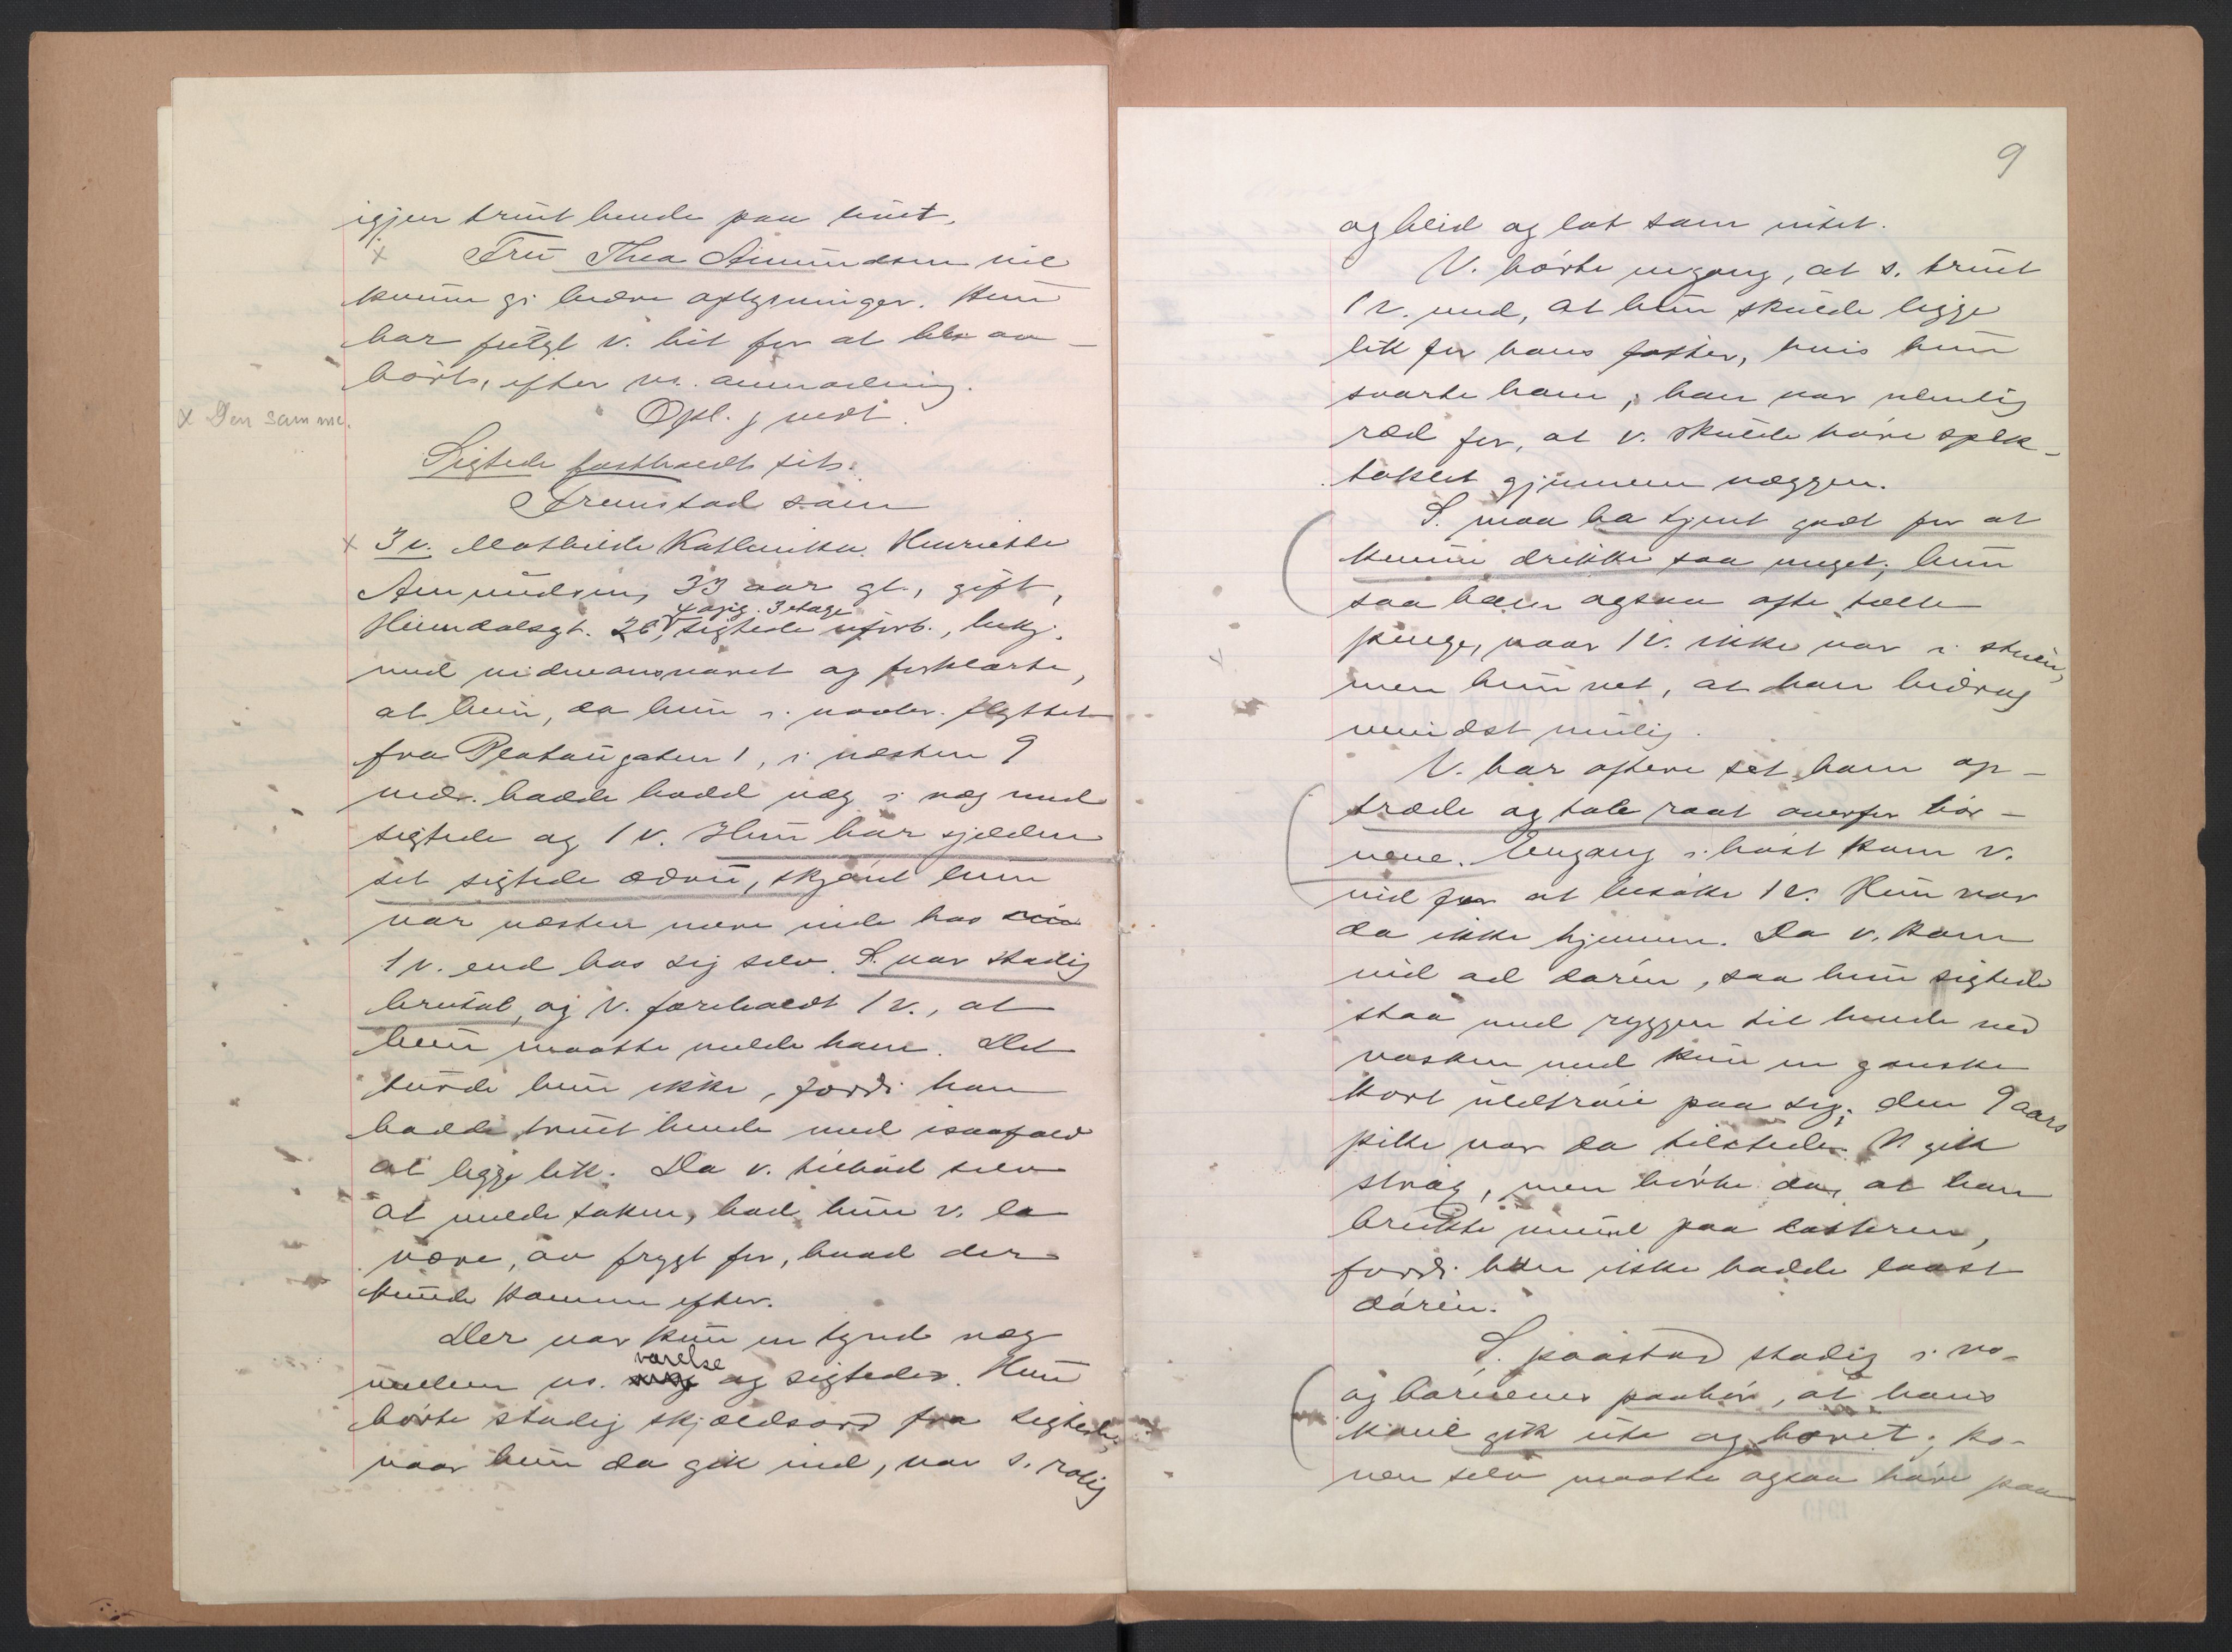 igjen truet hende paa livet.
x Fru Thea Amundsen vil
kunne gi bedre oplysninger. Hun
har fulgt v. hit for at bli av-
hørt, efter vs. anmodning.
x Den samme.
Opl. j vedt.
Sigtede fastholdt sit.
Fremstod som
x 3 v. Mathilde Kathinka Henriette
Amundsen, 33 aar gl., gift,
opg. 3 etage
Heimdalsgt. 26, sigtede uforb., bekj.
med vidneansvaret og forklarte,
at hun, da hun i novbr. flyttet
fra Platougaten 1, i næsten 9
mdr. hadde bodd væg i væg med
sigtede og 1 v. Hun har sjelden
set sigtede ædru, skjønt hun
var næsten mere inde hos
1 v. end hos sig selv. S. var stadig
brutal, og v. foreholdt 1 v., at
hun maatte melde ham. Det
turde hun ikke, fordi han
hadde truet hende med isaafald
at ligge lik. Da v. tilbød selv
at melde saken, bad hun v. la
være, av frygt for, hvad der
kunde komme efter.
Der var kun en tynd væg
mellem vs. værelse og sigtedes. Hun
hørte stadig skjældsord fra sigtede,
naar hun da gik ind, var s. rolig
9
og blid og lot som intet.
V. hørte engang, at s. truet
1 v. med, at hun skulde ligge
lik for hans føtter, hvis hun
svarte ham; han var nemlig
ræd for, at v. skulde høre spek-
taklet gjennem væggen.
S. maa ha tjent godt for at
kunne drikke saa meget; hun
saa ham ogsaa ofte tælle
penge, naar 1 v. ikke var i stuen,
men hun vet, at han bidrog
mindst mulig.
V. har oftere set ham op-
træde og tale raat overfor bør-
nene. Engang i høst kom v.
ind for at besøke 1 v. Hun var
da ikke hjemme. Da v. kom
ind ad døren, saa hun sigtede
staa med ryggen til hende ved
vasken med kun en ganske
kort uldtrøie paa sig; den 9 aars
pike var da tilstede. V. gik
strax, men hørte da, at han
brukte mund paa datteren,
fordi hun ikke hadde laast
døren.
S. paastod stadig i vs-
og barnenes paahør, at hans
kone gik ute og horet; ko-
nen selv maatte ogsaa høre paa